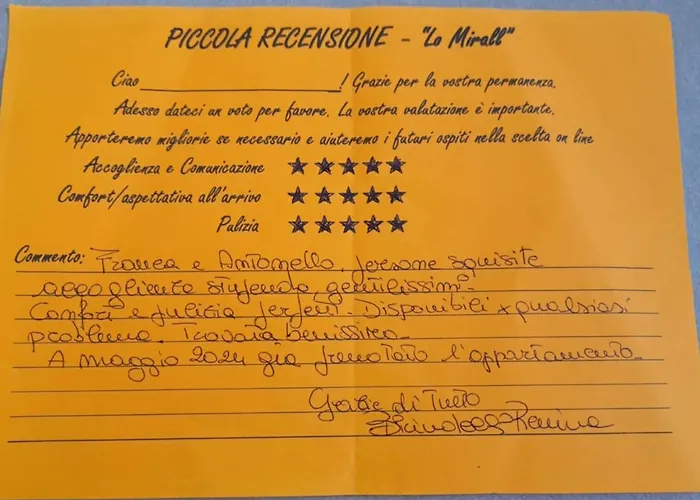 PICCOLA RECENSIONE - "Lo Mirall"
Ciao ! Grazie per la vostra permanenza.
Adesso dateci un voto per favore. La vostra valutazione è importante.
Apporteremo migliorie se necessario e aiuteremo i futuri ospiti nella scelta on line
Accoglienza e Comunicazione
Comfort/aspettativa all'arrivo
Pulizia
Commento: Franca e Antonello, persone squisite
accogliente stupendo gentilissimi.
Confort e pulizia perfetti. Disponibili x qualsiasi
problema. Trovata benissimo.
A maggio 2024 già prenotato l'appartamento.
Grazie di Tutto